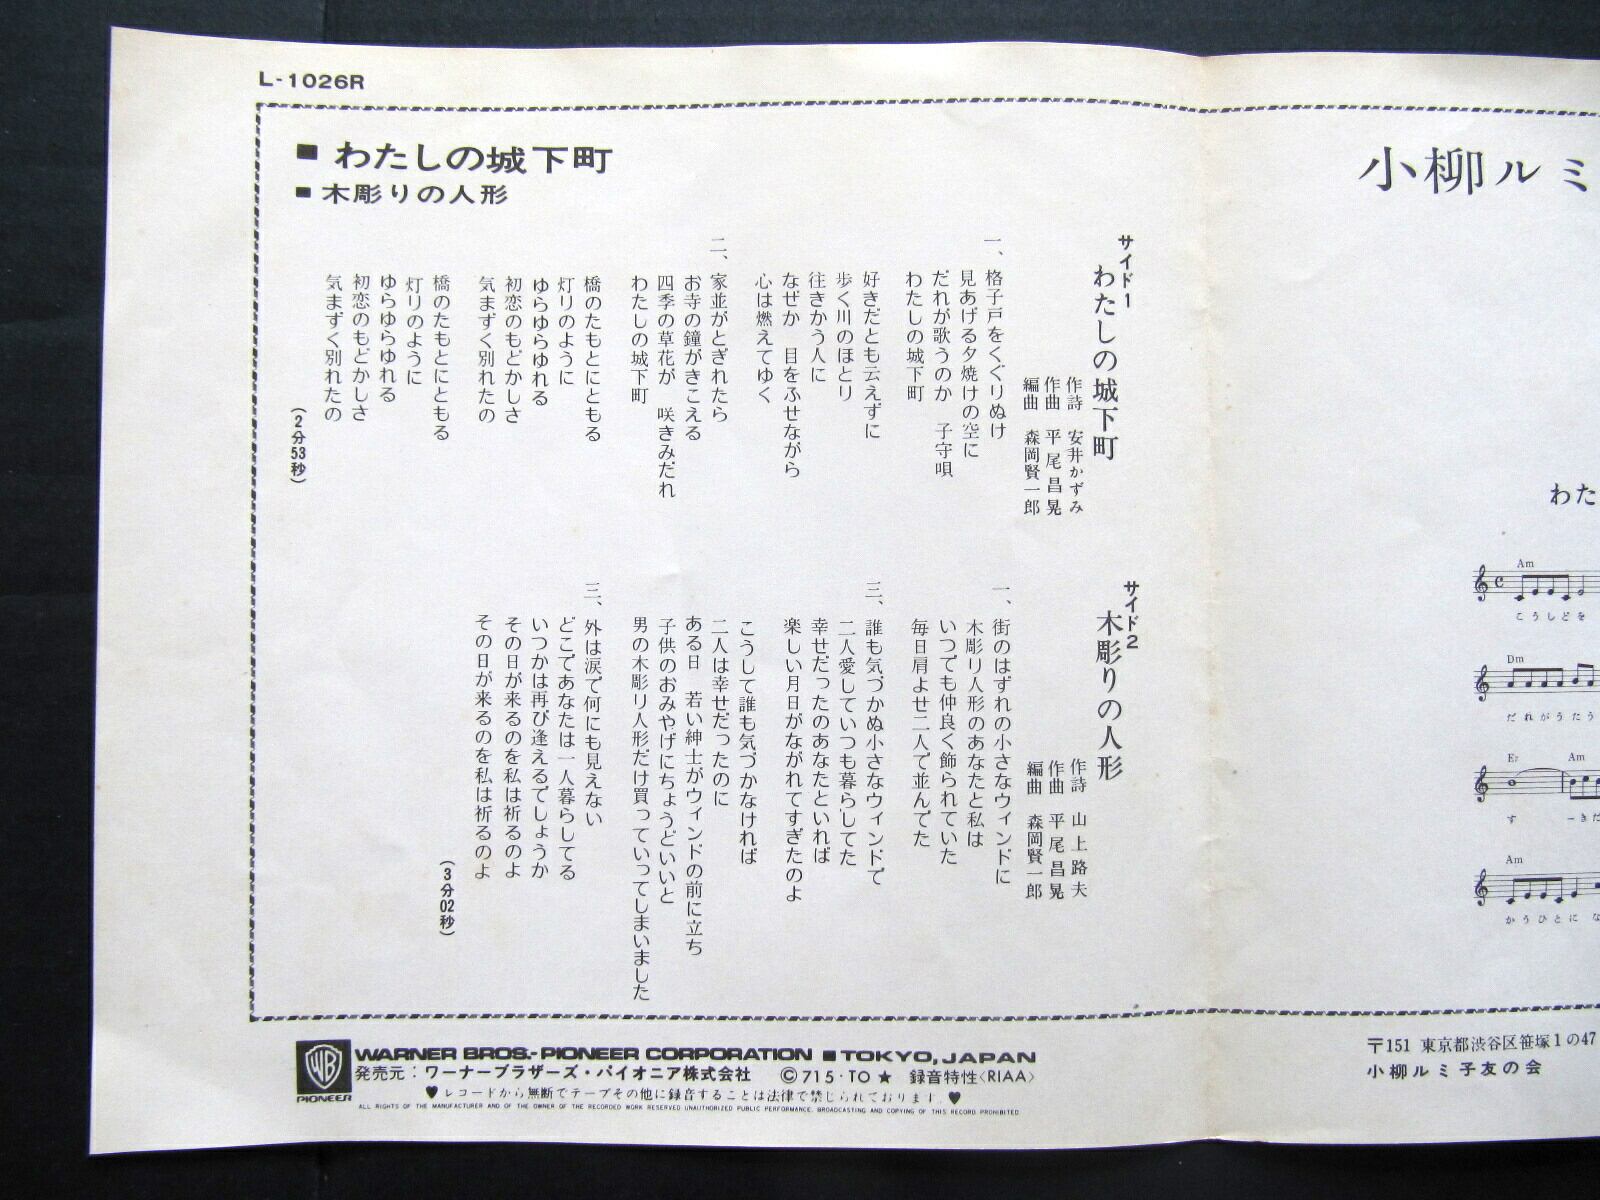 L-1026R
■ わたしの城下町
■ 木彫りの人形
サイド1
わたしの城下町
作詩 安井かずみ
作曲 平尾昌晃
編曲 森岡賢一郎
一、格子戸をくぐりぬけ
見あげる夕焼けの空に
だれが歌うのか 子守唄
わたしの城下町
好きだとも云えずに
歩く川のほとり
往きかう人に
なぜか 目をふせながら
心は燃えてゆく
二、家並がとぎれたら
お寺の鐘がきこえる
四季の草花が 咲きみだれ
わたしの城下町
橋のたもとにともる
灯りのように
ゆらゆらゆれる
初恋のもどかしさ
気まずく別れたの
橋のたもとにともる
灯りのように
ゆらゆらゆれる
初恋のもどかしさ
気まずく別れたの
(2分53秒)
サイド2
木彫りの人形
作詩 山上路夫
作曲 平尾昌晃
編曲 森岡賢一郎
一、街のはずれの小さなウィンドに
木彫り人形のあなたと私は
いつでも仲良く飾られていた
毎日肩よせ二人で並んでた
二、誰も気づかぬ小さなウィンドで
二人愛していつも暮らしてた
幸せだったのあなたといれば
楽しい月日がながれてすぎたのよ
こうして誰も気づかなければ
二人は幸せだったのに
ある日 若い紳士がウィンドの前に立ち
子供のおみやげにちょうどいいと
男の木彫り人形だけ買っていってしまいました
三、外は涙で何にも見えない
どこであなたは一人暮らしてる
いつかは再び逢えるでしょうか
その日が来るのを私は祈るのよ
その日が来るのを私は祈るのよ
(3分02秒)
WB
PIONEER
WARNER BROS.-PIONEER CORPORATION ■ TOKYO, JAPAN
発売元：ワーナーブラザーズ・パイオニア株式会社 Ⓒ715・TO★ 録音特性〈RIAA〉
♥レコードから無断でテープその他に録音することは法律で禁じられております。♥
ALL RIGHTS OF THE MANUFACTURER AND OF THE OWNER OF THE RECORDED WORK RESERVED UNAUTHORIZED PUBLIC PERFORMANCE. BROADCASTING AND COPYING OF THIS RECORD PROHIBITED
小柳ルミ
わた
Am
こうしどを
Dm
だれがうたう
E7 Am
す ーきだ
Am
かうひとに な
〒151 東京都渋谷区笹塚1の47
小柳ルミ子友の会